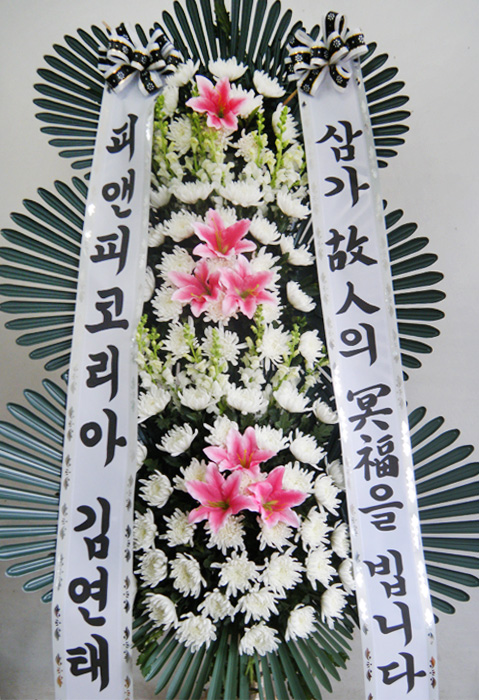 피앤피코리아 김연태
삼가 故人의 冥福을 빕니다